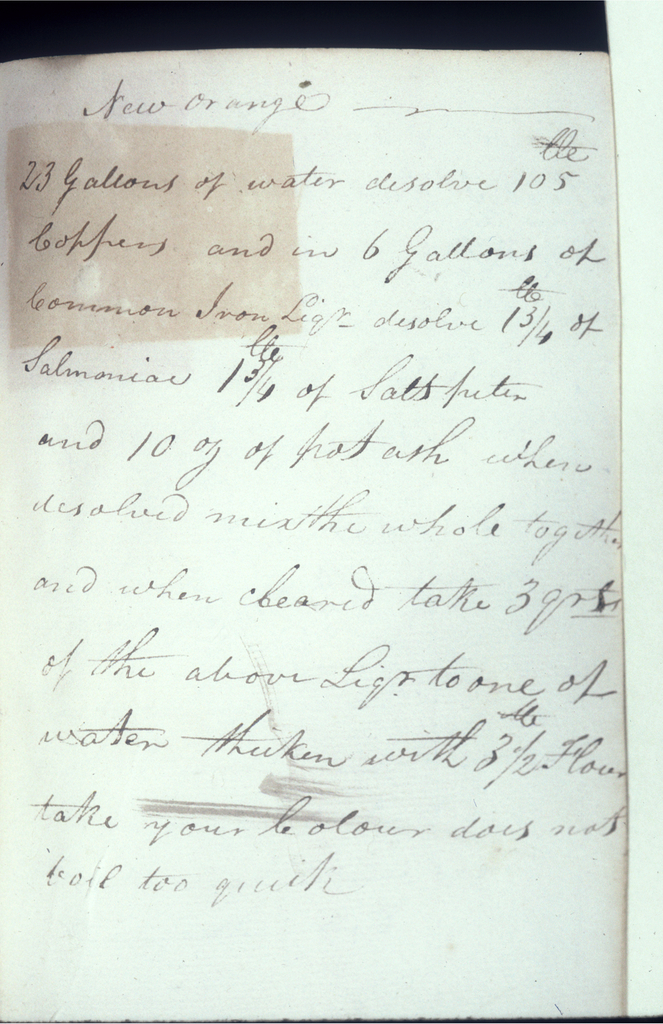 New orange
23 Gallons of water desolve 105 lbs
Coppers and in 6 Gallons of
Common Iron Liqr desolve 1 3/4 lbs of
Salmoniac 1 3/4 lbs of Salts peter
and 10 oz of pot ash when
desolved mix the whole together
and when cleared take 3 qrts
of the above Liqr to one of
water thicken with 3 1/2 lbs Flour
take your Colour does not
boil too quick